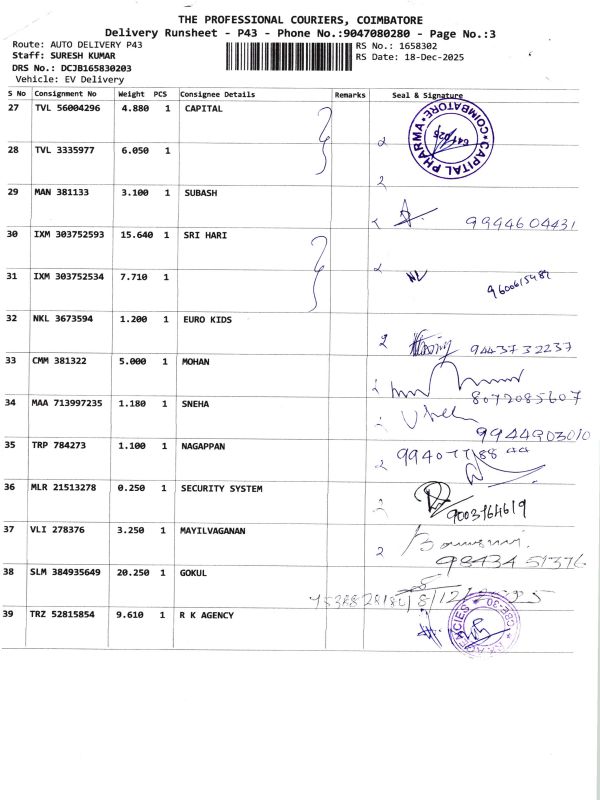 THE PROFESSIONAL COURIERS, COIMBATORE
Delivery Runsheet - P43 - Phone No.:9047080280 - Page No.:3
Route: AUTO DELIVERY P43
RS No.: 1658302
Staff: SURESH KUMAR
RS Date: 18-Dec-2025
DRS No.: DCJB165830203
Vehicle: EV Delivery
S No Consignment No Weight PCS Consignee Details Remarks Seal & Signature
27 TVL 56004296 4.880 1 CAPITAL
CAPITAL PHARMA COIMBATORE
28 TVL 3335977 6.050 1
29 MAN 381133 3.100 1 SUBASH
9944604431
30 IXM 303752593 15.640 1 SRI HARI
31 IXM 303752534 7.710 1
32 NKL 3673594 1.200 1 EURO KIDS
9443732237
33 CMM 381322 5.000 1 MOHAN
8072085607
34 MAA 713997235 1.180 1 SNEHA
9944903010
35 TRP 784273 1.100 1 NAGAPPAN
36 MLR 21513278 0.250 1 SECURITY SYSTEM
9003764619
37 VLI 278376 3.250 1 MAYILVAGANAN
38 SLM 384935649 20.250 1 GOKUL
39 TRZ 52815854 9.610 1 R K AGENCY